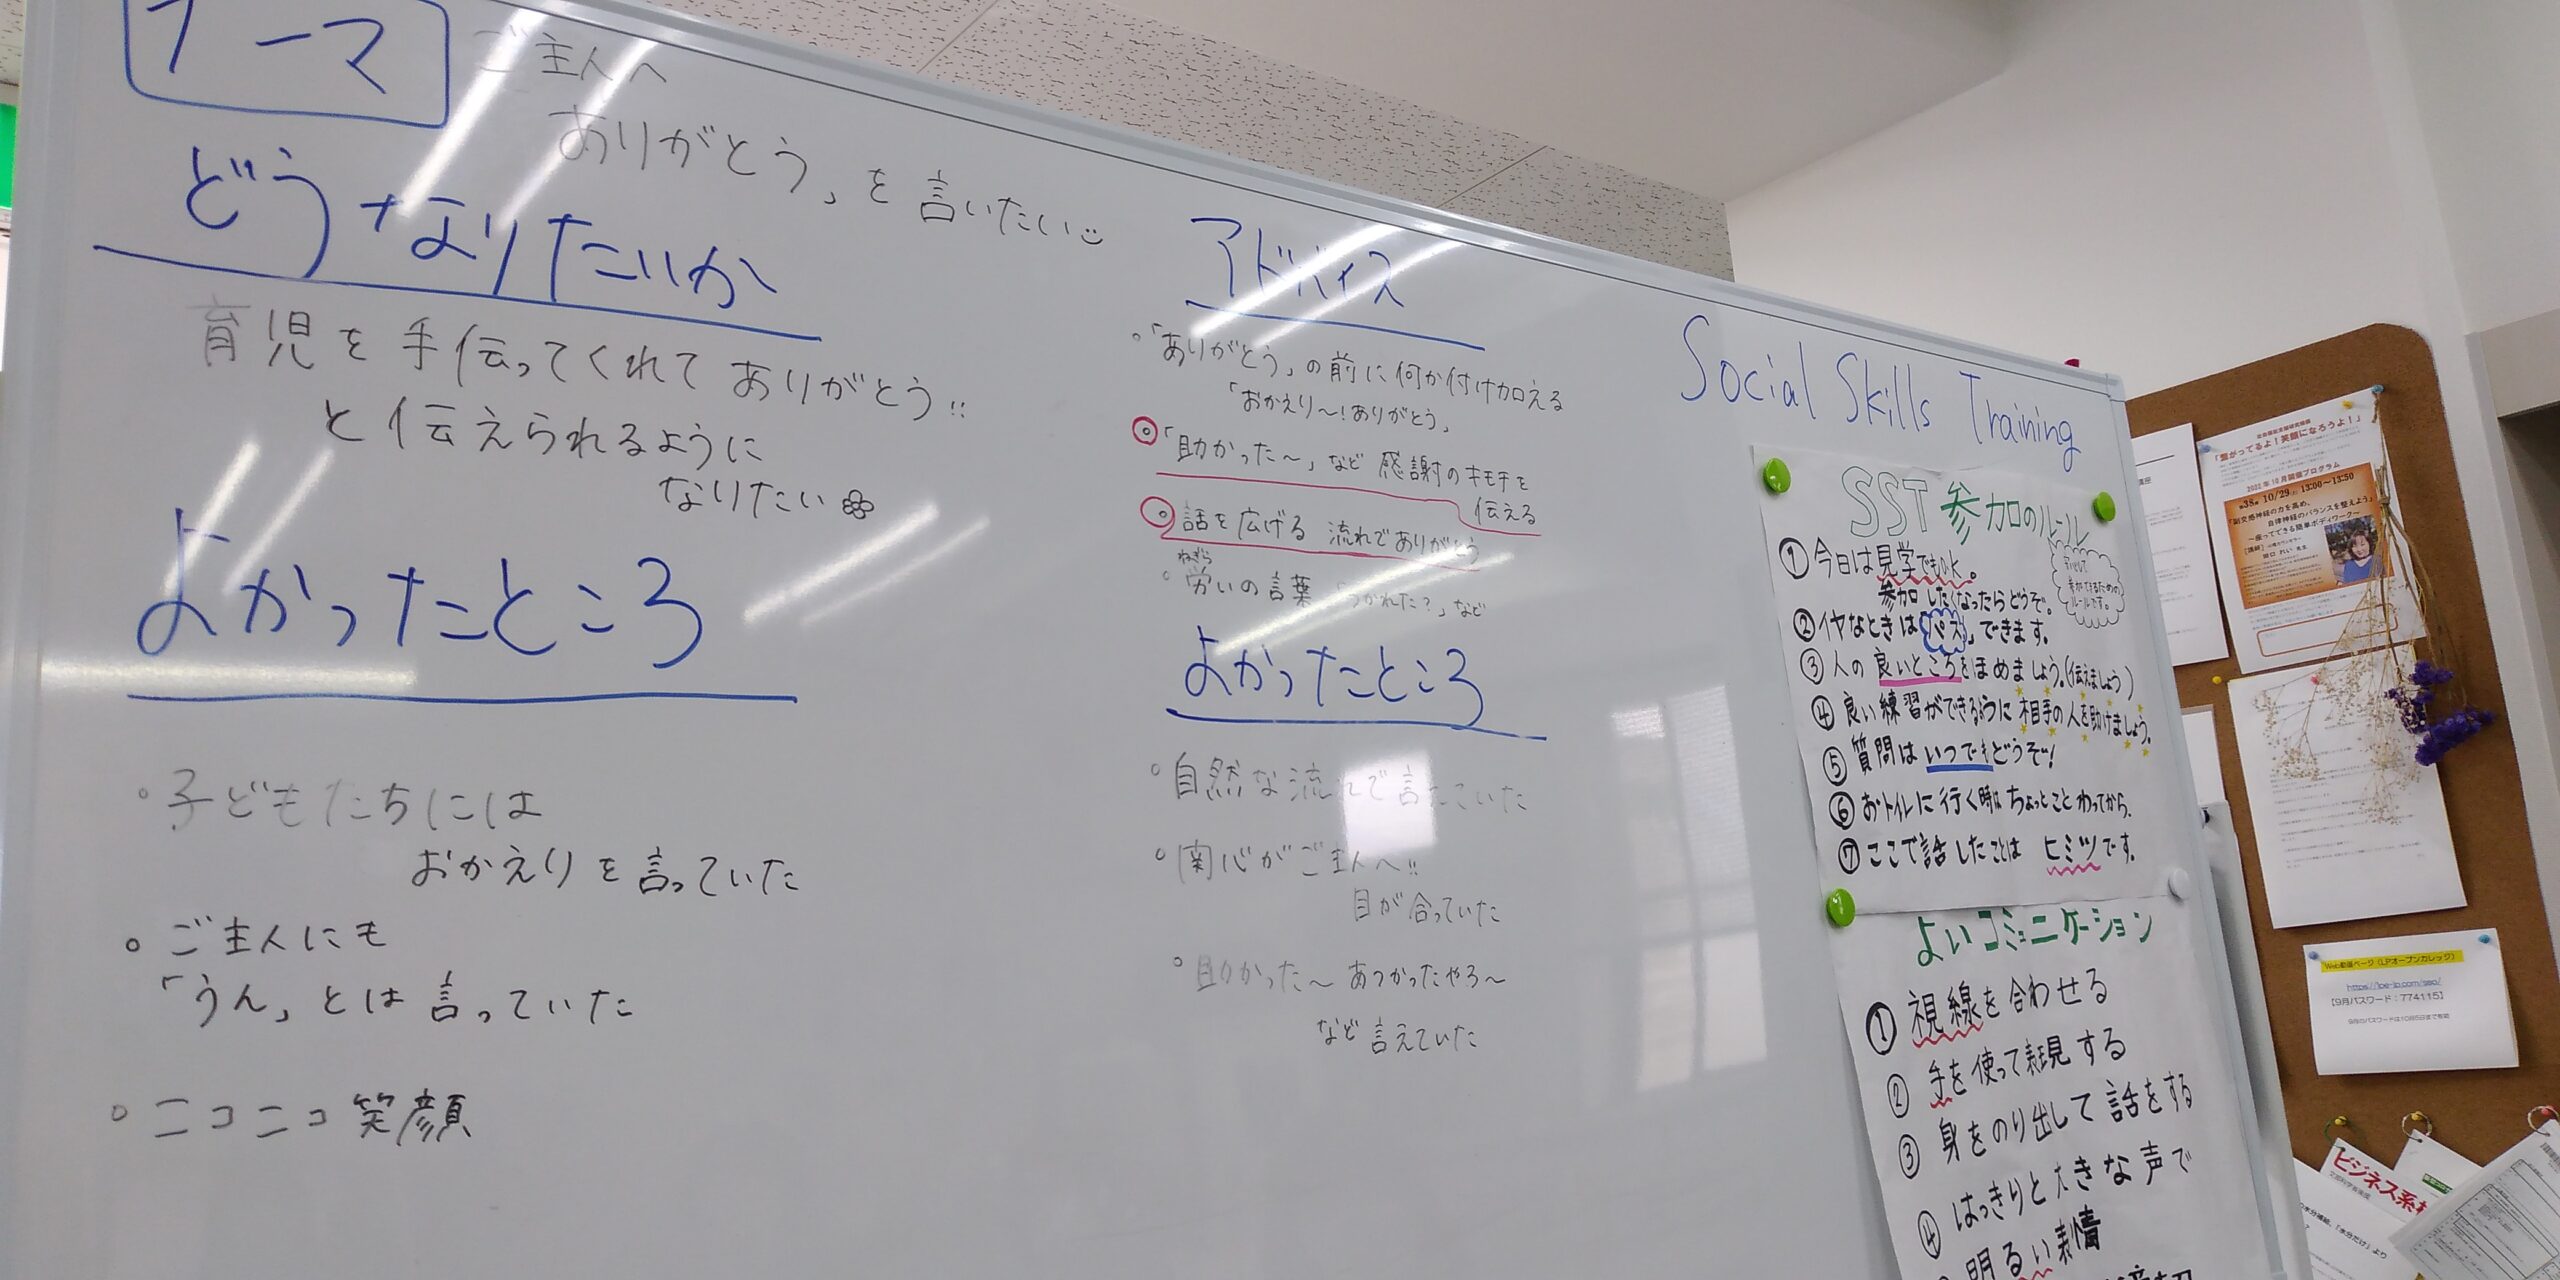 テーマ
ご主人へ
ありがとう」を言いたい
どうなりたいか
育児を手伝ってくれてありがとう!!
と伝えられるように
なりたい
よかったところ
。子どもたちには
おかえりを言っていた
。ご主人にも
「うん」とは言っていた
。ニコニコ笑顔
アドバイス
。「ありがとう」の前に何か付け加える
「おかえり〜!ありがとう」
。「助かった〜」など感謝のキモチを
伝える
。話を広げる 流れでありがとう
ねぎら
。労いの言葉「つかれた?」など
よかったところ
。自然な流れで言えていた
。関心がご主人へ!!
目が合っていた
。助かった〜 あつかったやろ〜
など言えていた
Social Skills Training
SST参加のルール
①今日は見学でもok。
参加したくなったらどうぞ。
②イヤなときは「パス」できます。
③人の良いところをほめましょう。(伝えましょう)
④良い練習ができるように相手の人を助けましょう。
⑤質問はいつでもどうぞ!
⑥おトイレに行く時はちょっとことわってから。
⑦ここで話したことは ヒミツです。
安心して
参加できるための
ルールです。
よいコミュニケーション
①視線を合わせる
②手を使って表現する
③身をのり出して話をする
④はっきりと大きな声で
明るい表情
「繋がってるよ!笑顔になろうよ!」
2022年10月開催プログラム
第38回 10/29 13:00〜13:50
「副交感神経の力を高め、
自律神経のバランスを整えよう」
〜座ってできる簡単ボディワーク〜
Web動画ページ(LPオープンカレッジ)
【9月パスワード:774115】
9月のパスワードは10月5日まで有効
ビジネス系